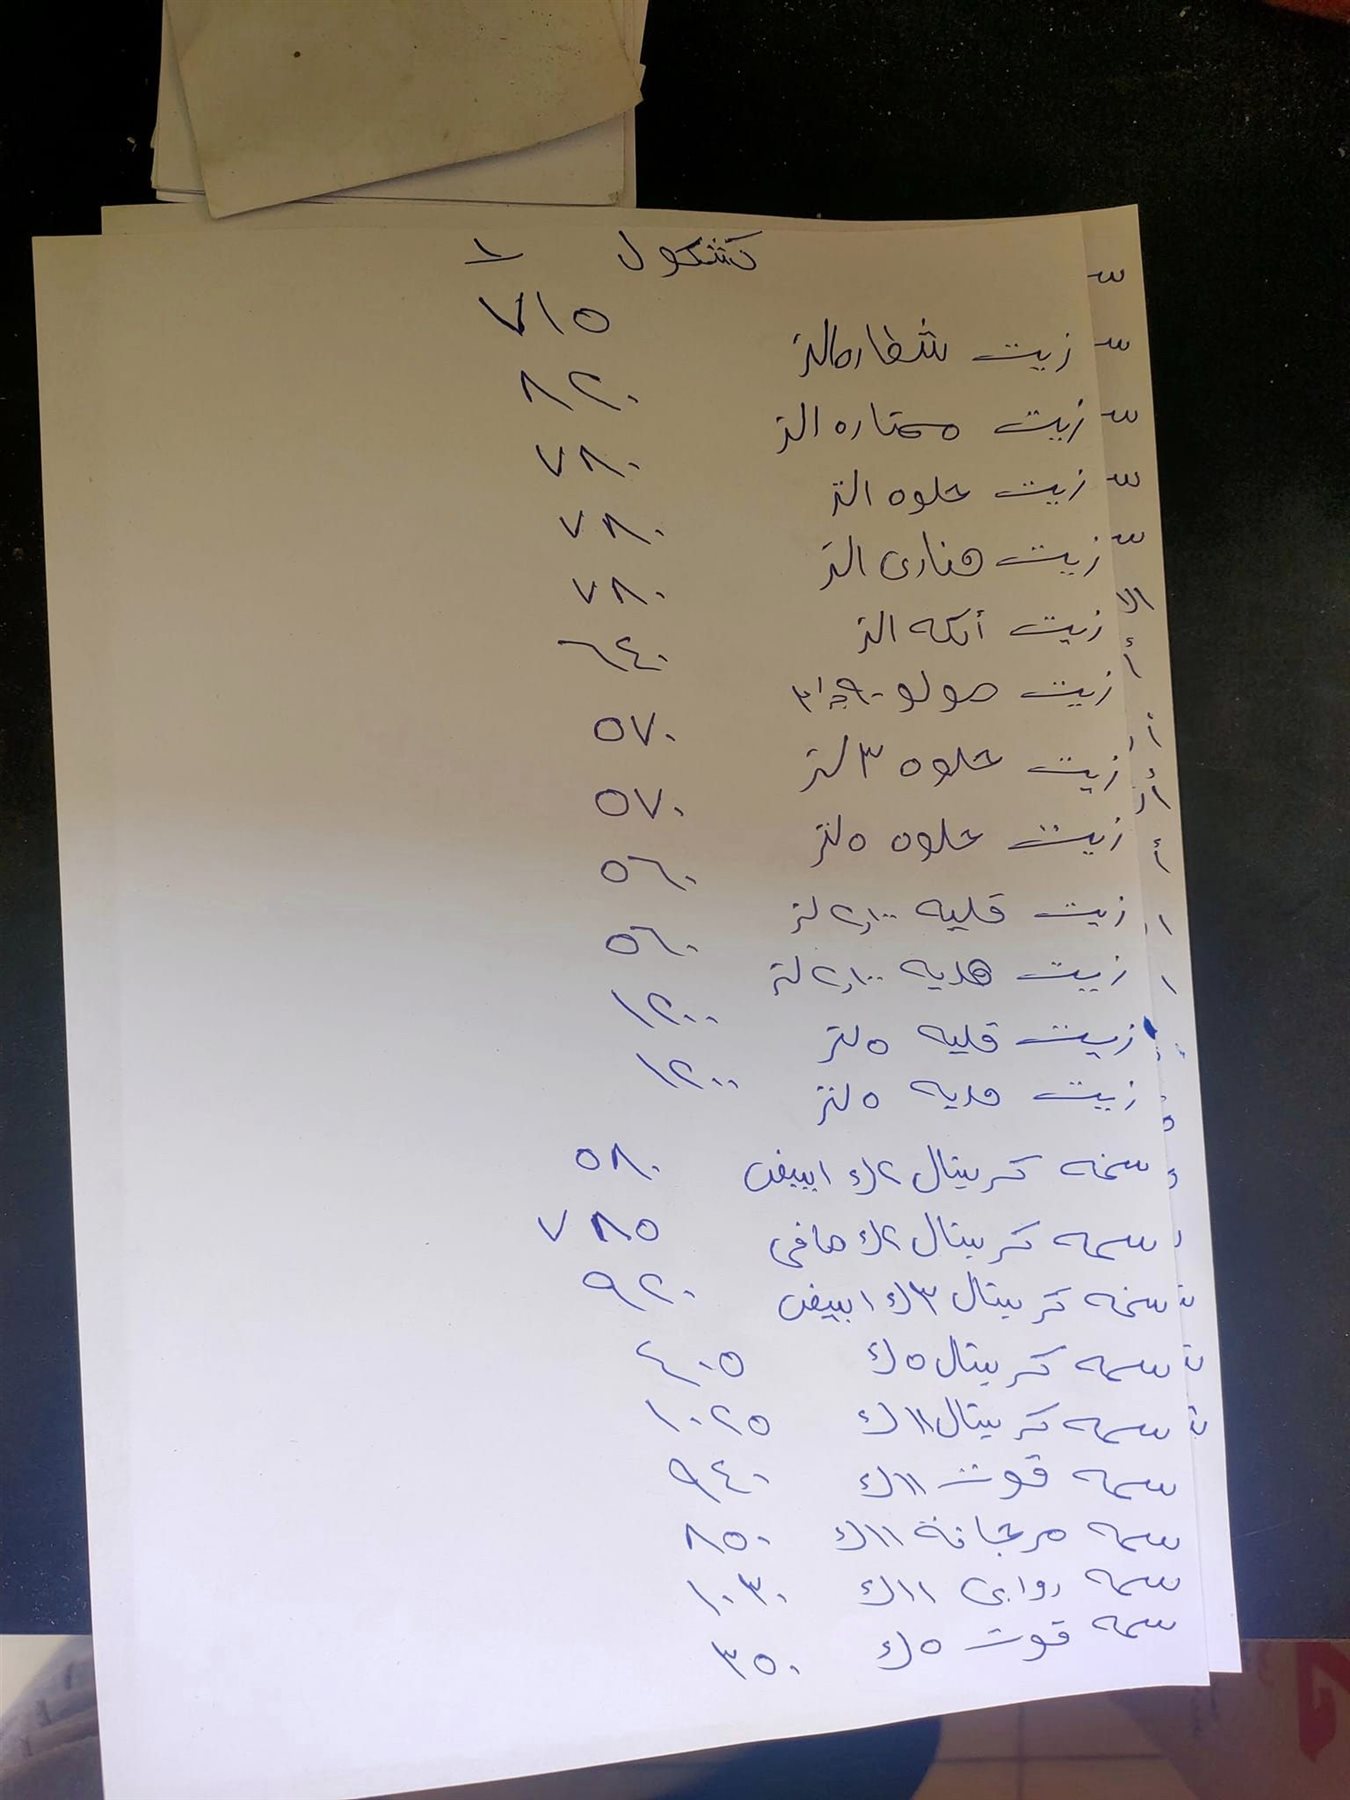 كشكول ١
زيت شطاره التر ٧١٥
زيت ممتازه التر ٨٢٠
زيت حلوه التر ٧٨٠
زيت هنادى التر ٧٨٠
زيت أكله التر ٧٨٠
زيت صولو ٦٤٠
زيت حلوه ٣ لتر ٥٧٠
زيت حلوه ٥ لتر ٥٧٠
زيت قليه ٢,١٠٠ لتر ٥٦٠
زيت هديه ٢,١٠٠ لتر ٥٦٠
زيت قليه ٥ لتر ١٢٠٠
زيت هديه ٥ لتر ١٢٠٠
سمنه كريستال ٢ك ابيض ٥٨٠
سمنه كريستال ٢ك صافى ٧٨٥
سمنه كريستال ٣ك ابيض ٩٢٠
سمنه كريستال ٥ك ٤٠٥
سمنه كريستال ١١ك ١٠٢٥
سمنه قوت ١١ك ٩٤٠
سمنه مرجانة ١١ك ٨٥٠
سمنه روابى ١١ك ١٠٣٠
سمنه قوت ٥ك ٣٥٠